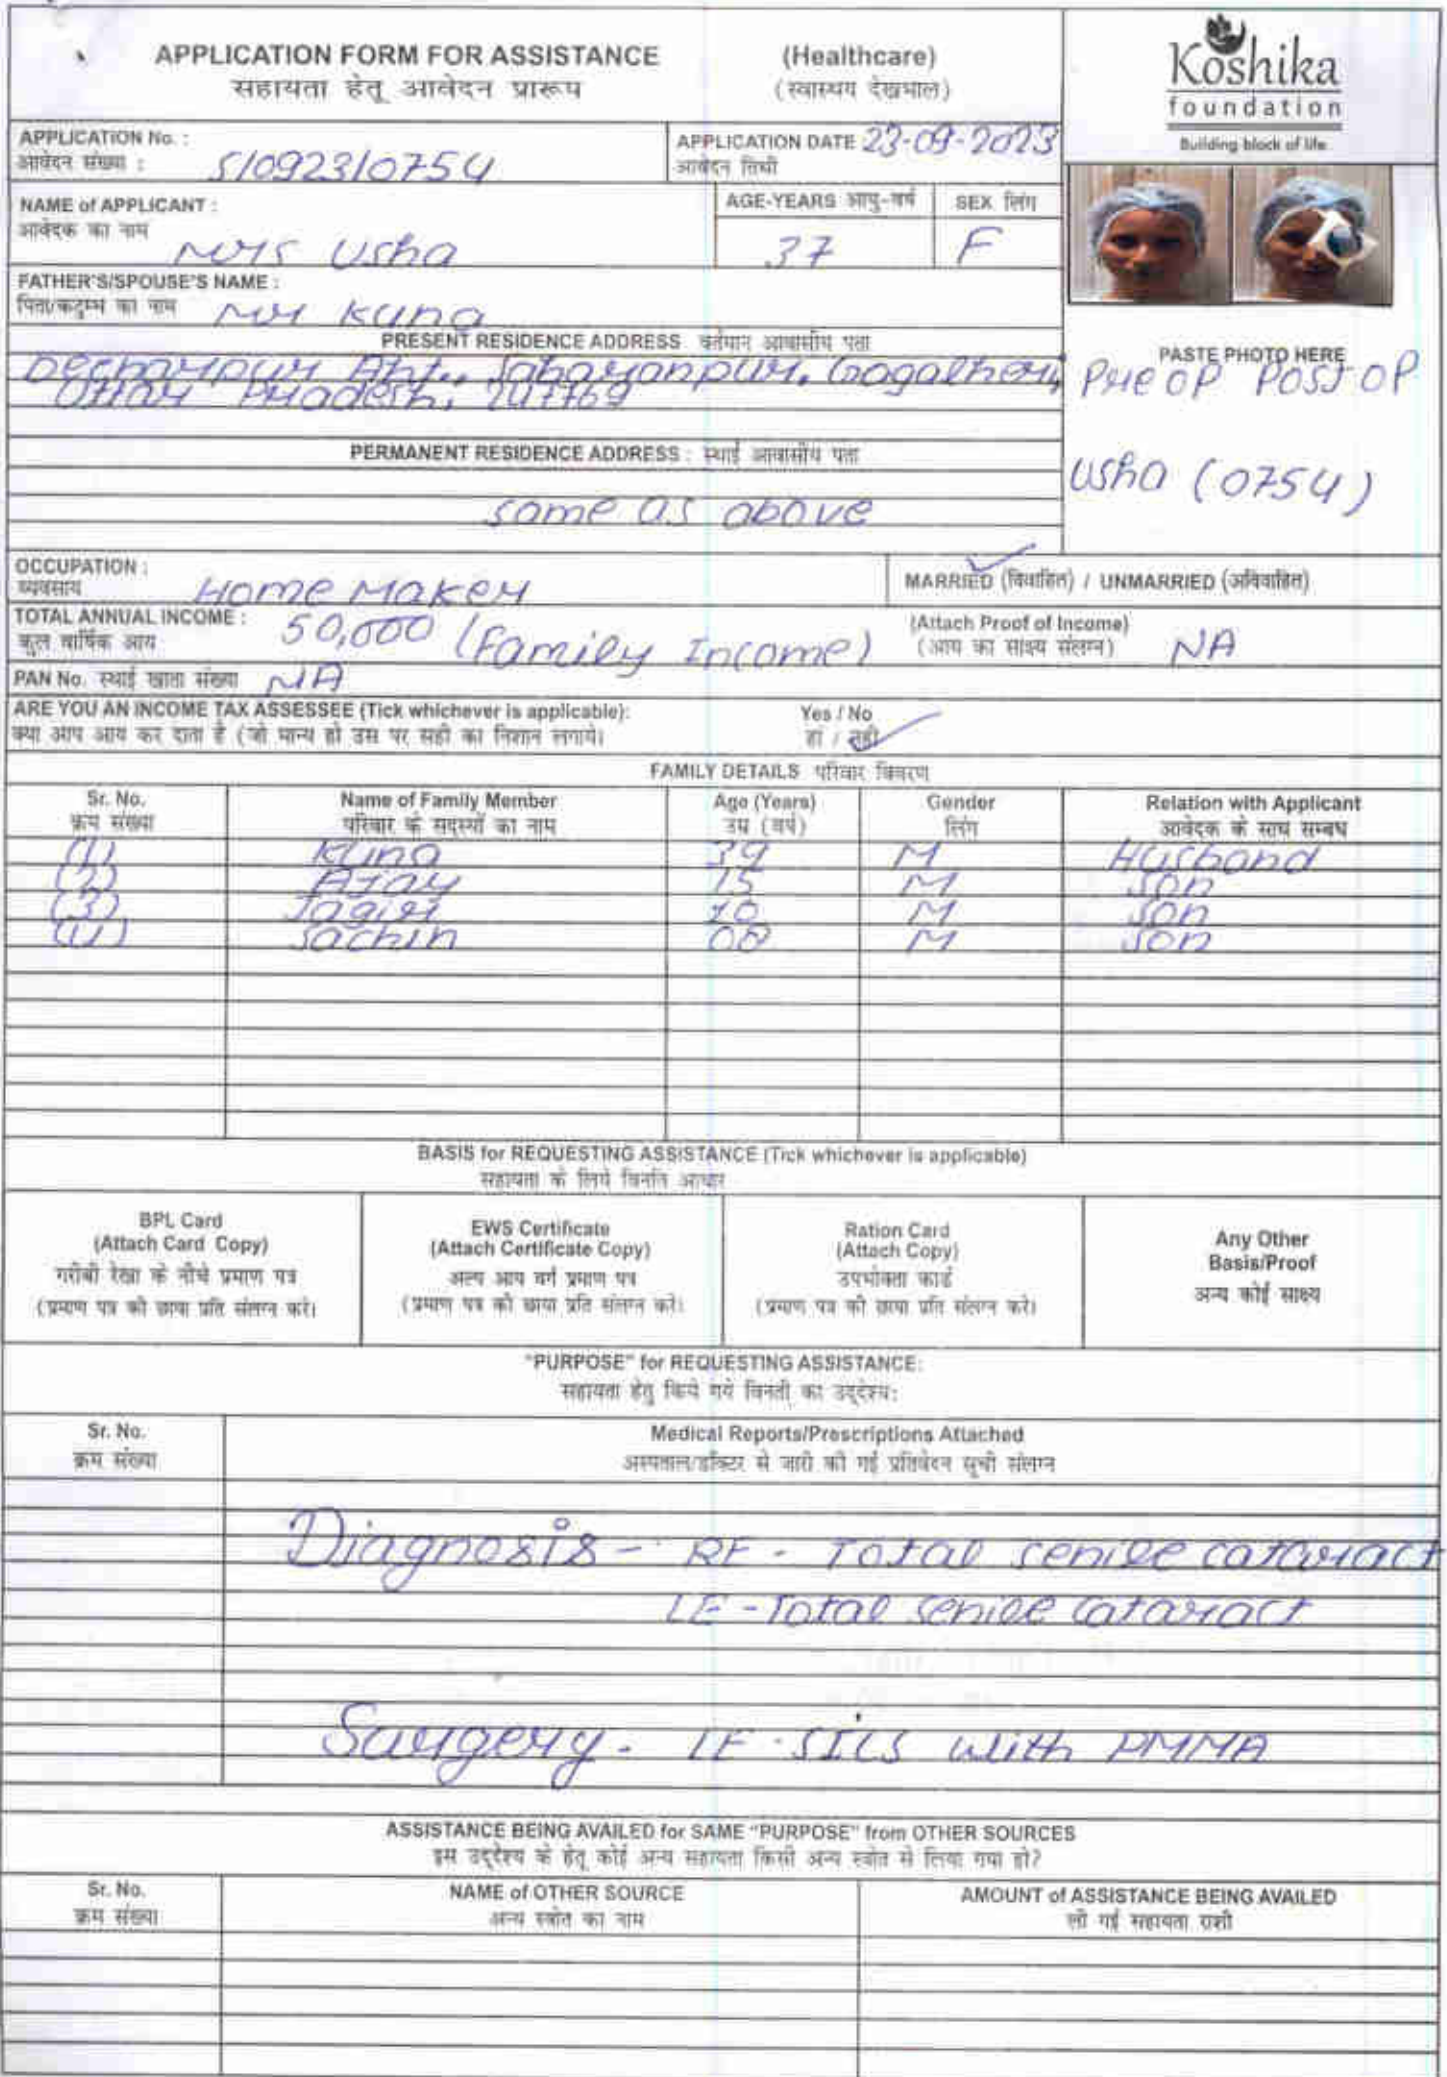 APPLICATION FORM FOR ASSISTANCE (Healthcare)
सहायता हेतू आवेदन प्रारूप (स्वास्थय देखभाल)
Koshika
foundation
Building block of life
APPLICATION No. : S/0923/0754
आवेदन संख्या :
APPLICATION DATE 23-09-2023
आवेदन तिथी
NAME of APPLICANT : Mrs Usha
आवेदक का नाम
AGE-YEARS आयु-वर्ष 37
SEX लिंग F
FATHER'S/SPOUSE'S NAME : Mr Kuna
पिता/कटुम्भ का नाम
PRESENT RESIDENCE ADDRESS वर्तमान आवासीय पता
Saharanpur, Gagalheri,
Uttar Pradesh, 247769
PASTE PHOTO HERE
Pre OP Post OP
Usha (0754)
PERMANENT RESIDENCE ADDRESS : स्थाई आवासीय पता
same as above
OCCUPATION : Home Maker
व्यवसाय
MARRIED (विवाहित) / UNMARRIED (अविवाहित)
TOTAL ANNUAL INCOME : 50,000 (Family Income)
कुल वार्षिक आय
(Attach Proof of Income) NA
(आय का साक्ष्य संलग्न)
PAN No. स्थाई खाता संख्या NA
ARE YOU AN INCOME TAX ASSESSEE (Tick whichever is applicable): Yes / No
क्या आप आय कर दाता है (जो मान्य हो उस पर सही का निशान लगाये। हां / नहीं
FAMILY DETAILS परिवार विवरण
Sr. No. Name of Family Member Age (Years) Gender Relation with Applicant
क्रम संख्या परिवार के सदस्यों का नाम उम्र (वर्ष) लिंग आवेदक के साथ सम्बध
(1) Kuna 39 M Husband
(2) Ajay 15 M Son
(3) Jagiri 10 M Son
(4) Sachin 08 M Son
BASIS for REQUESTING ASSISTANCE (Tick whichever is applicable)
सहायता के लिये विनति आधार
BPL Card
(Attach Card Copy)
गरीबी रेखा के नीचे प्रमाण पत्र
(प्रमाण पत्र की छाया प्रति संलग्न करे।
EWS Certificate
(Attach Certificate Copy)
अल्प आय वर्ग प्रमाण पत्र
(प्रमाण पत्र की छाया प्रति संलग्न करे।
Ration Card
(Attach Copy)
उपभोक्ता कार्ड
(प्रमाण पत्र की छाया प्रति संलग्न करे।
Any Other
Basis/Proof
अन्य कोई साक्ष्य
"PURPOSE" for REQUESTING ASSISTANCE:
सहायता हेतु किये गये विनती का उद्देश्य:
Sr. No. Medical Reports/Prescriptions Attached
क्रम संख्या अस्पताल/डॉक्टर से जारी की गई प्रतिवेदन सूची संलग्न
Diagnosis - RE - Total senile cataract
LE - Total senile cataract
Surgery - LE - SICS with PMMA
ASSISTANCE BEING AVAILED for SAME "PURPOSE" from OTHER SOURCES
इस उद्देश्य के हेतू कोई अन्य सहायता किसी अन्य स्त्रोत से लिया गया हो?
Sr. No. NAME of OTHER SOURCE AMOUNT of ASSISTANCE BEING AVAILED
क्रम संख्या अन्य स्त्रोत का नाम ली गई सहायता राशी